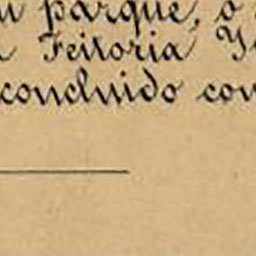 parque, o
Feitoria
concluido con